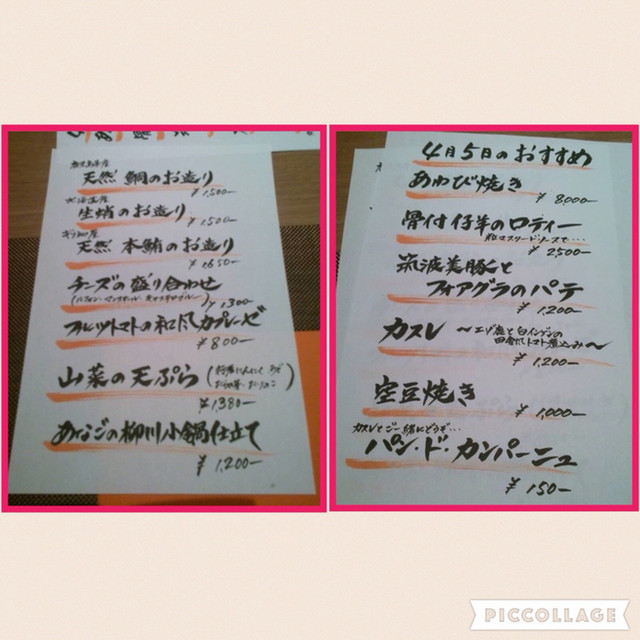 天然 鯛のお造り
¥1,500-
北海道産
生蛸のお造り
¥1,500-
天然 本鮪のお造り
¥1,650-
チーズの盛り合わせ
¥1300-
フルーツトマトの和風カプレーゼ
¥800-
山菜の天ぷら
¥1,380-
あなごの柳川小鍋仕立て
¥1,200-
4月5日のおすすめ
あわび焼き
¥8000-
骨付仔羊のロティー
粒マスタードソースで…
¥2,500-
筑波美豚と
フォアグラのパテ
¥1,200-
カスレ 〜エゾ鹿と白インゲンの
田舎風トマト煮込み〜
¥1,200-
空豆焼き
¥1,000-
カスレとご一緒にどうぞ…
パン・ド・カンパーニュ
¥150-
PICCOLLAGE